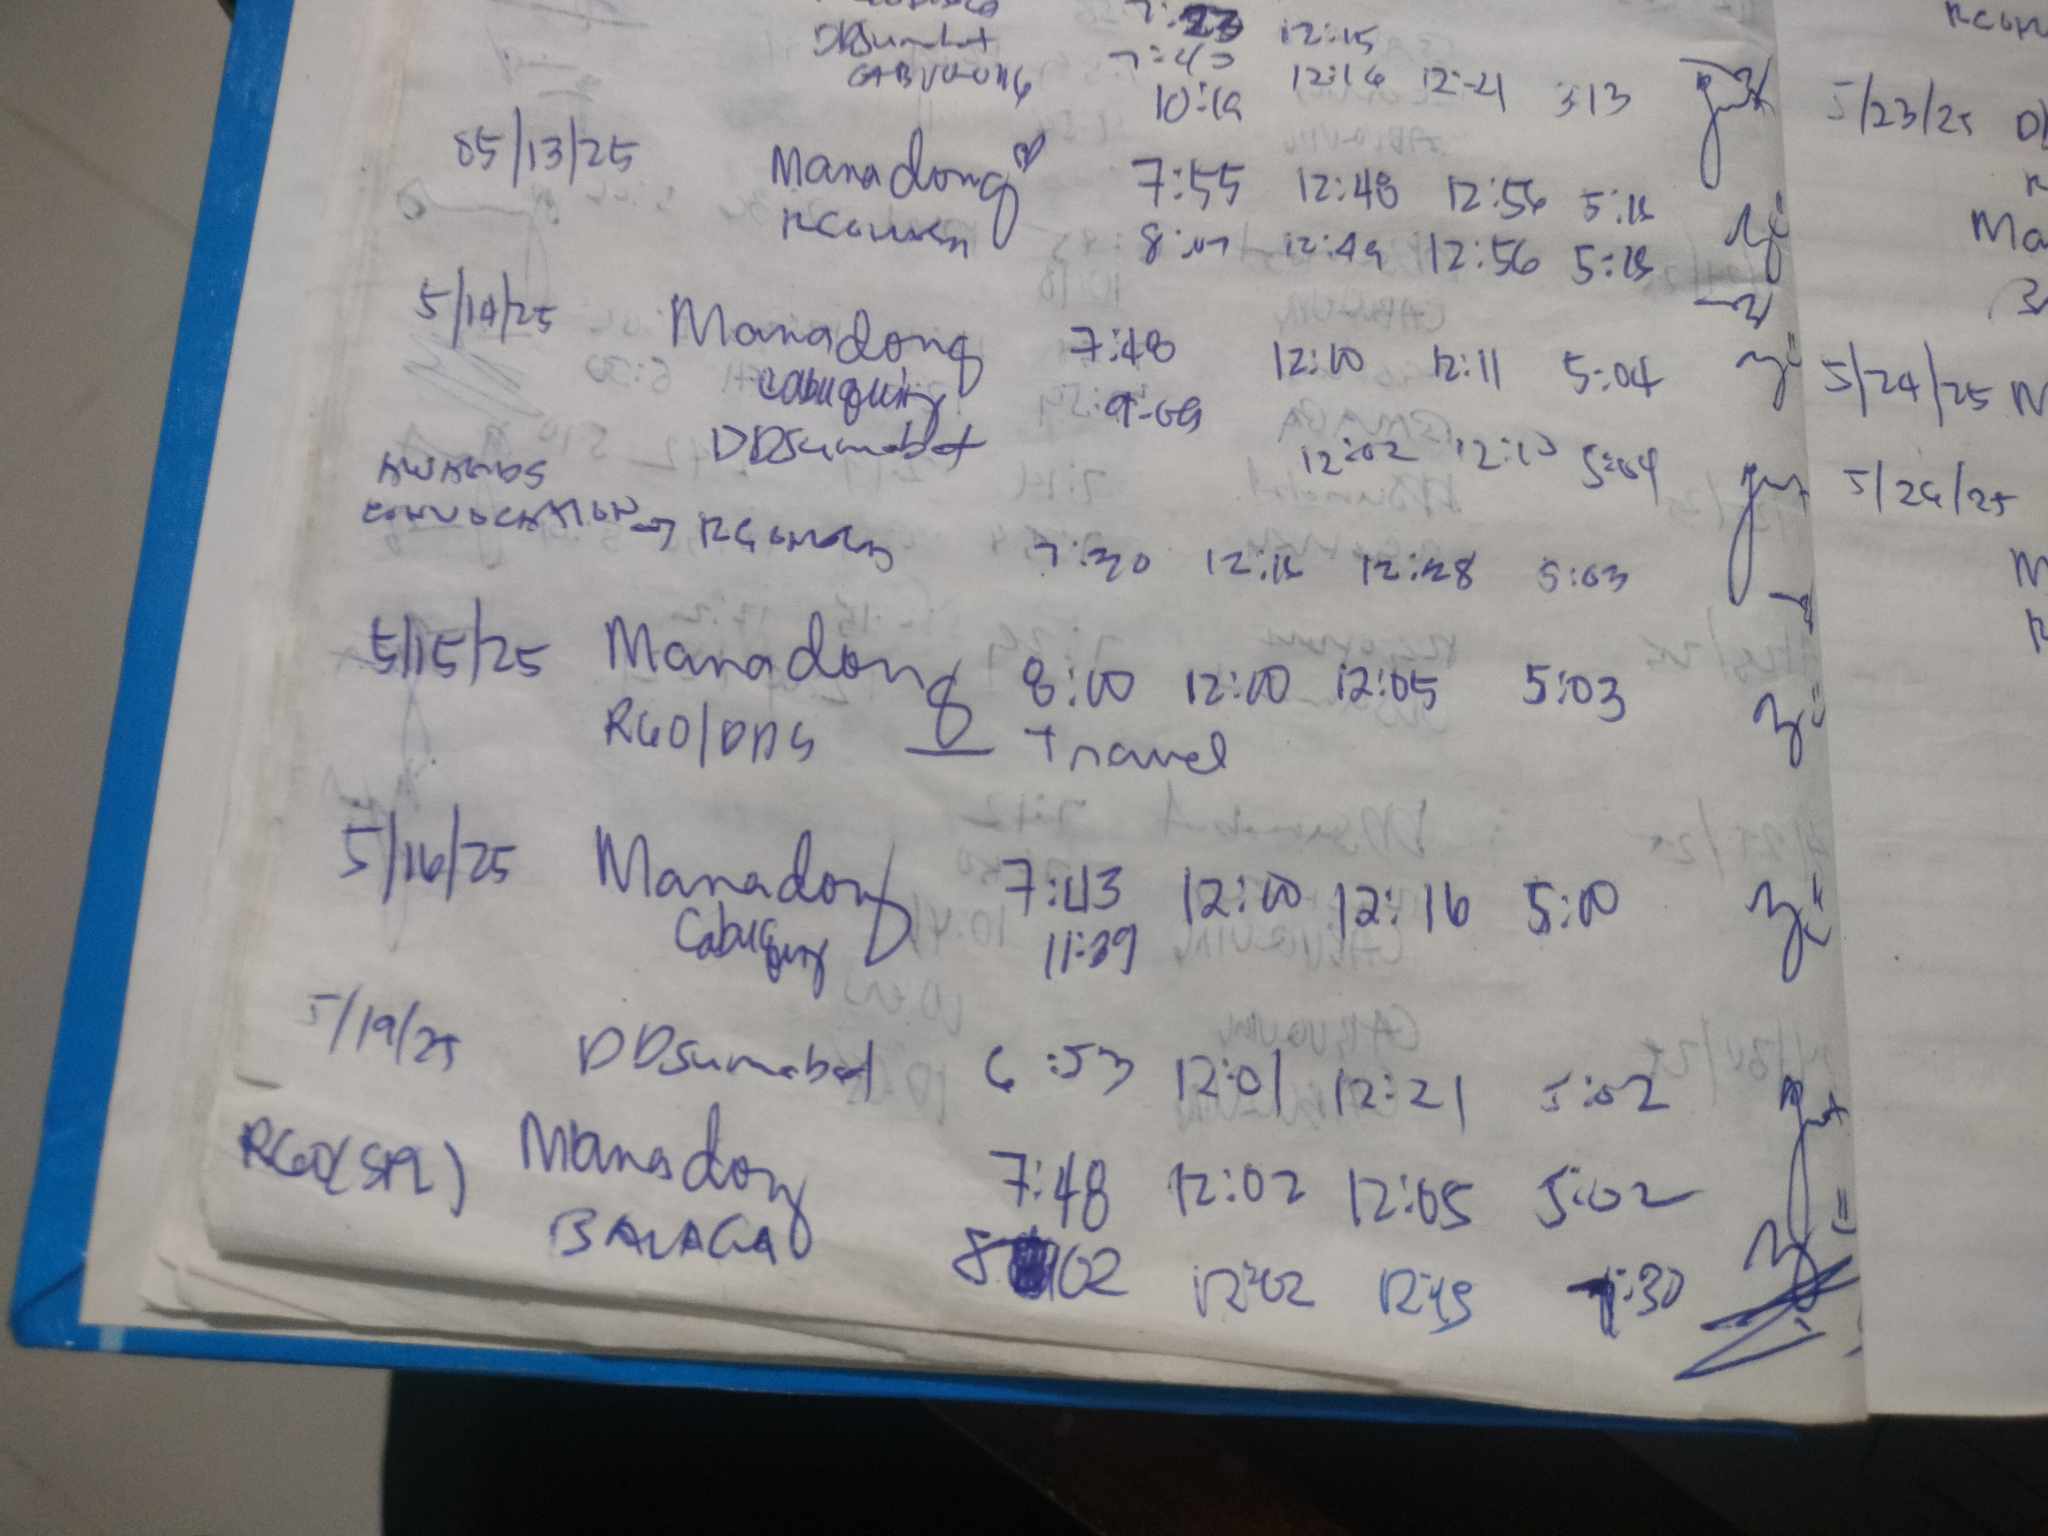 7:23 12:15
DDSumabat 7:43 12:16 12:21 3:13
CABUQUING 10:19
05/13/25 Manadong 7:55 12:48 12:56 5:18
8:07 12:49 12:56 5:18
5/14/25 Manadong 7:48 12:00 12:11 5:04
Cabuquing 9:09
DDSumabat 12:02 12:10 5:04
AWARDS
CONVOCATION → 7:30 12:18 12:28 5:03
5/15/25 Manadong 8:00 12:00 12:05 5:03
RGO/DDS Travel
5/16/25 Manadong 7:43 12:00 12:16 5:00
Cabuquing 11:39
5/19/25 DDSumabat 6:53 12:01 12:21 5:02
Manadong 7:48 12:02 12:05 5:02
RGO(SPL) BALAGA 8 02 12:02 12:13 :30
5/23/25
Ma
5/24/25
5/26/25